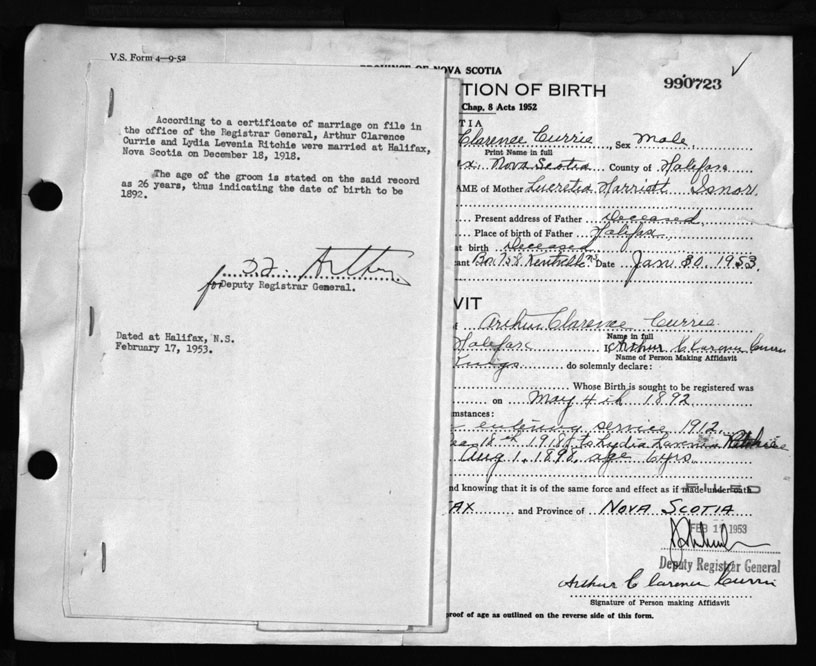 V.S. Form 4—9-52
According to a certificate of marriage on file in
the office of the Registrar General, Arthur Clarence
Currie and Lydia Levenia Ritchie were married at Halifax,
Nova Scotia on December 18, 1918.
The age of the groom is stated on the said record
as 26 years, thus indicating the date of birth to be
1892.
for Deputy Registrar General.
Dated at Halifax, N.S.
February 17, 1953.
PROVINCE OF NOVA SCOTIA
TION OF BIRTH
990723
Chap. 8 Acts 1952
TIA
Clarence Currie, Sex Male
Print Name in full
ax, Nova Scotia County of Halifax
AME of Mother Lucretia Harriott Isnor
Present address of Father Deceased
Place of birth of Father Halifax
at birth Deceased
ant Box 758 Kentville N.S. Date Jan 30, 1953.
VIT
Arthur Clarence Currie
Name in full
Halifax Arthur Clarence Currie
Name of Person Making Affidavit
Kings do solemnly declare:
Whose Birth is sought to be registered was
on May 4th 1892
mstances:
entering service 1912
18th 1918 to Lydia Ritchie
Aug 1. 1898 age 6 yrs.
nd knowing that it is of the same force and effect as if made under oath
FILED
FAX and Province of NOVA SCOTIA
FEB 17 1953
Deputy Registrar General
Arthur Clarence Currie
Signature of Person making Affidavit
proof of age as outlined on the reverse side of this form.